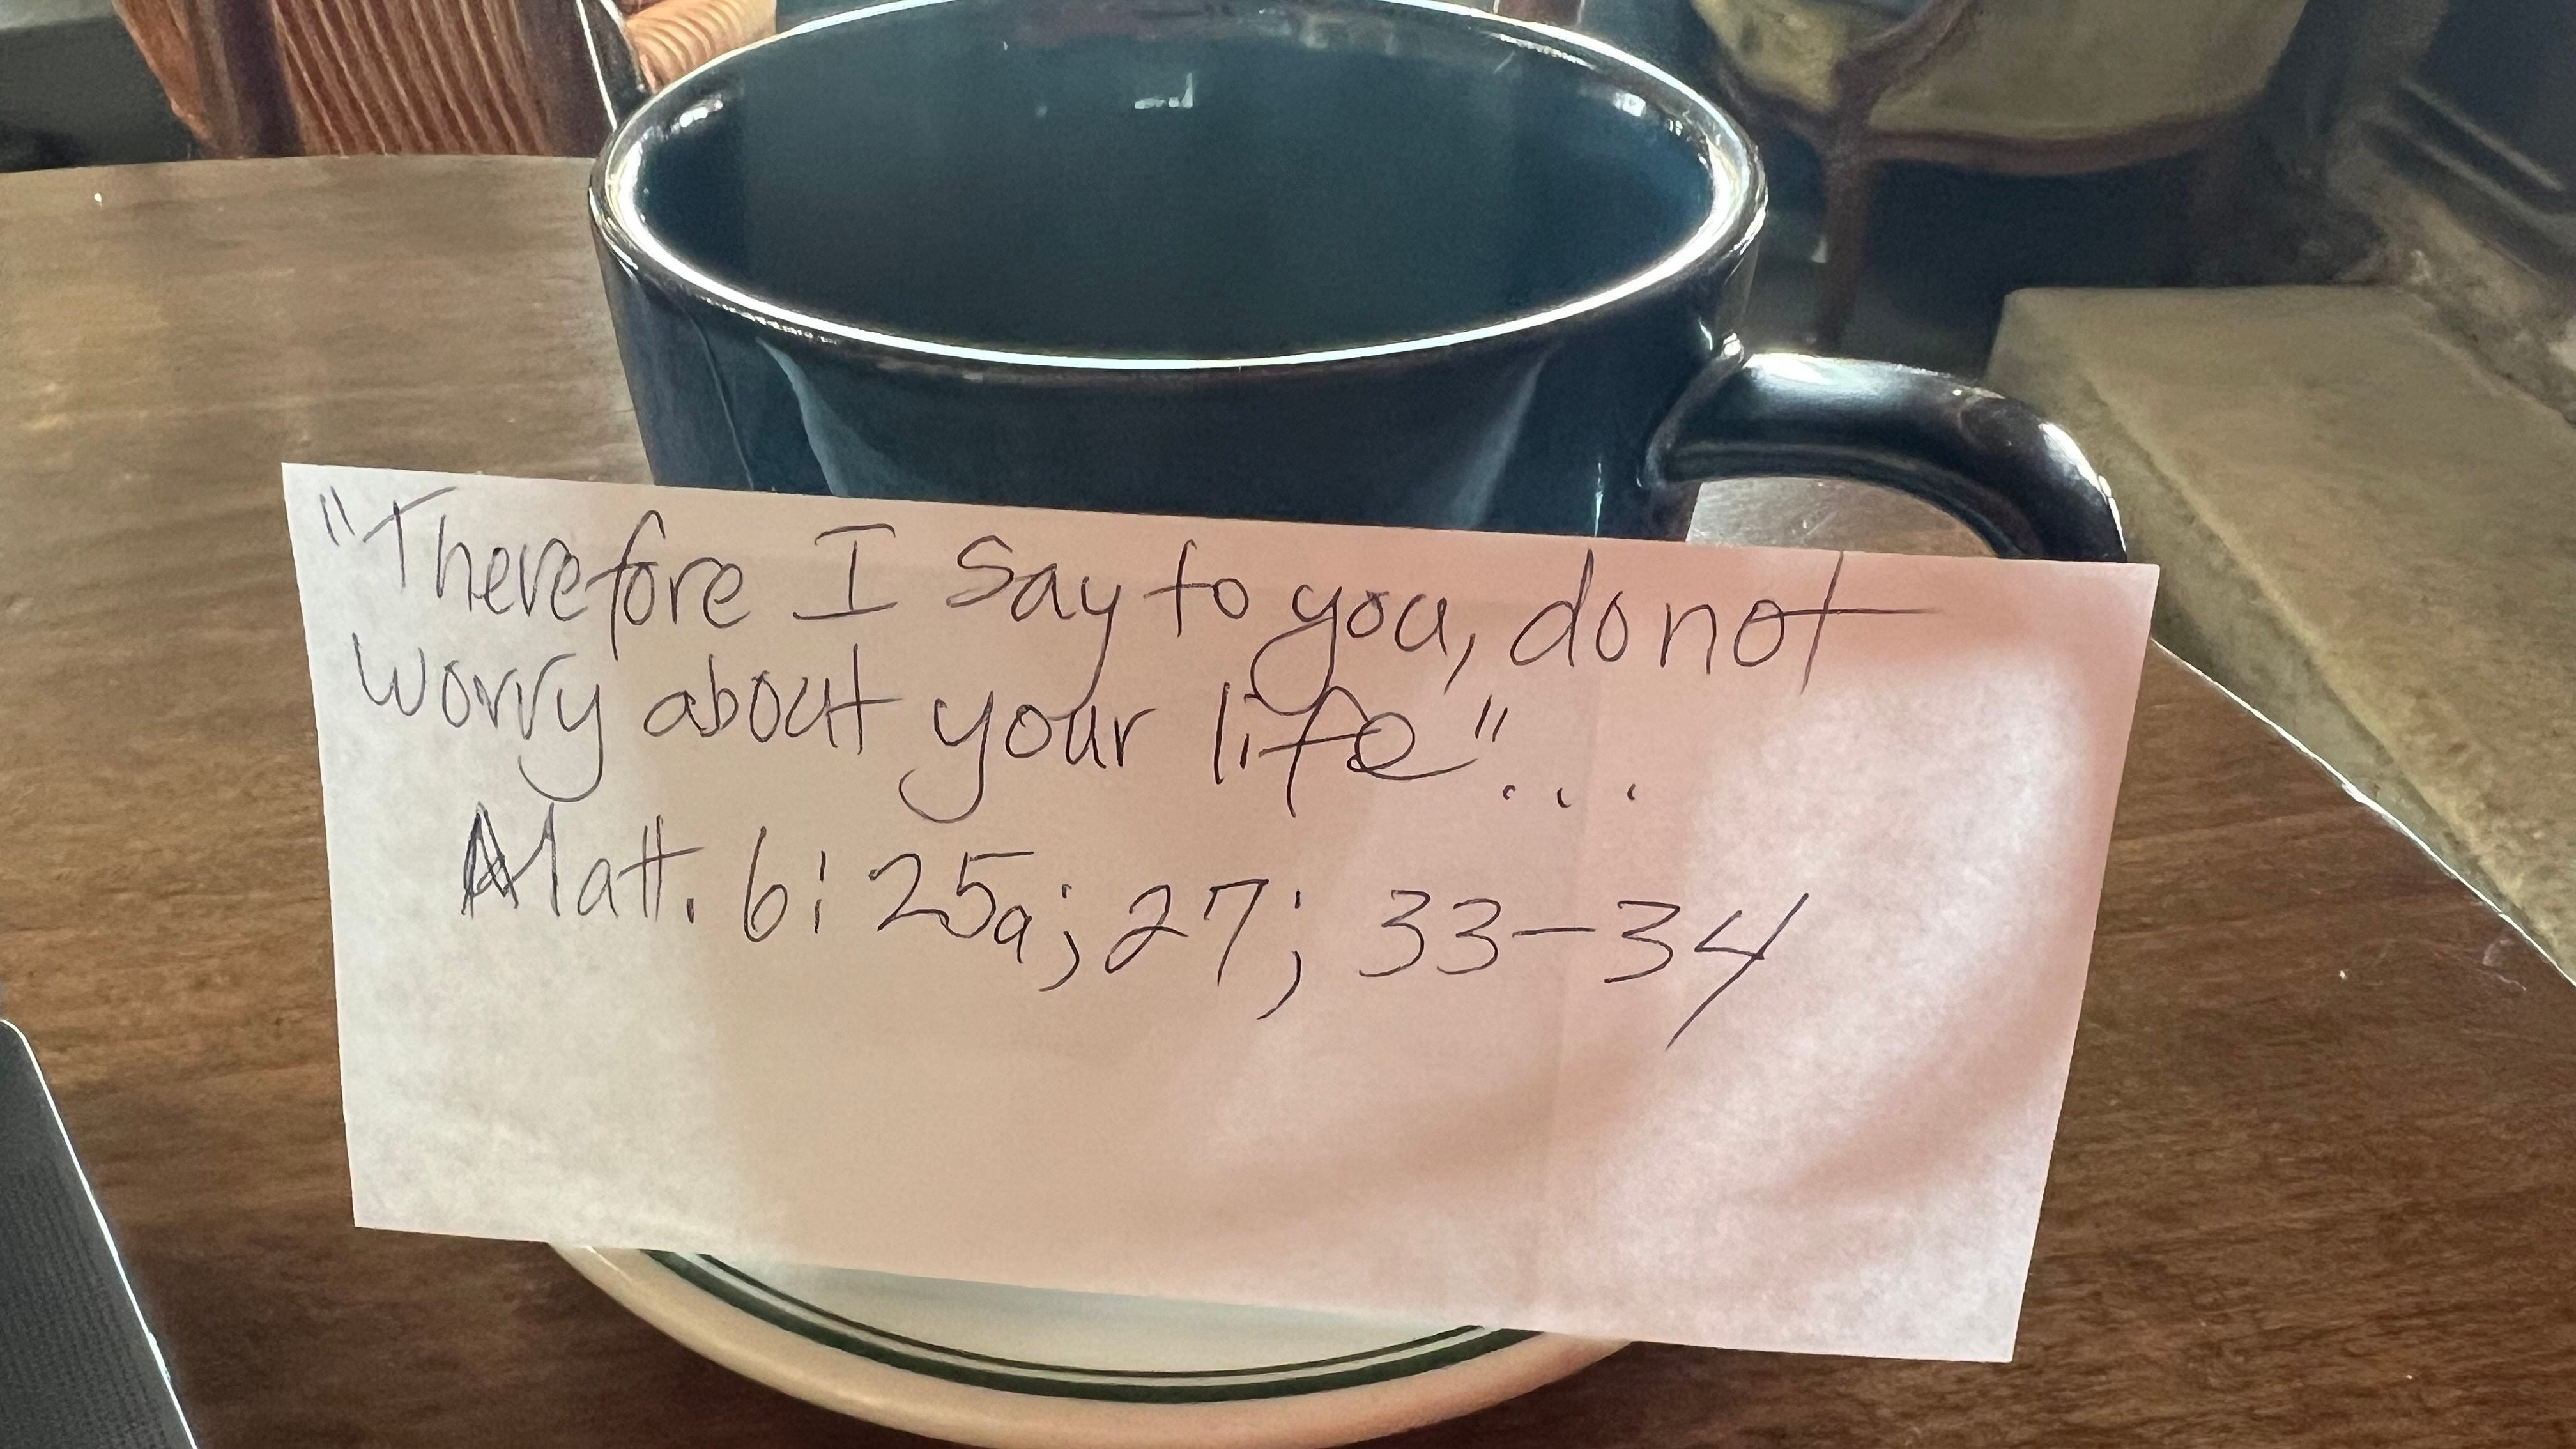 "Therefore I say to you, do not
worry about your life"...
Matt. 6:25a; 27; 33-34